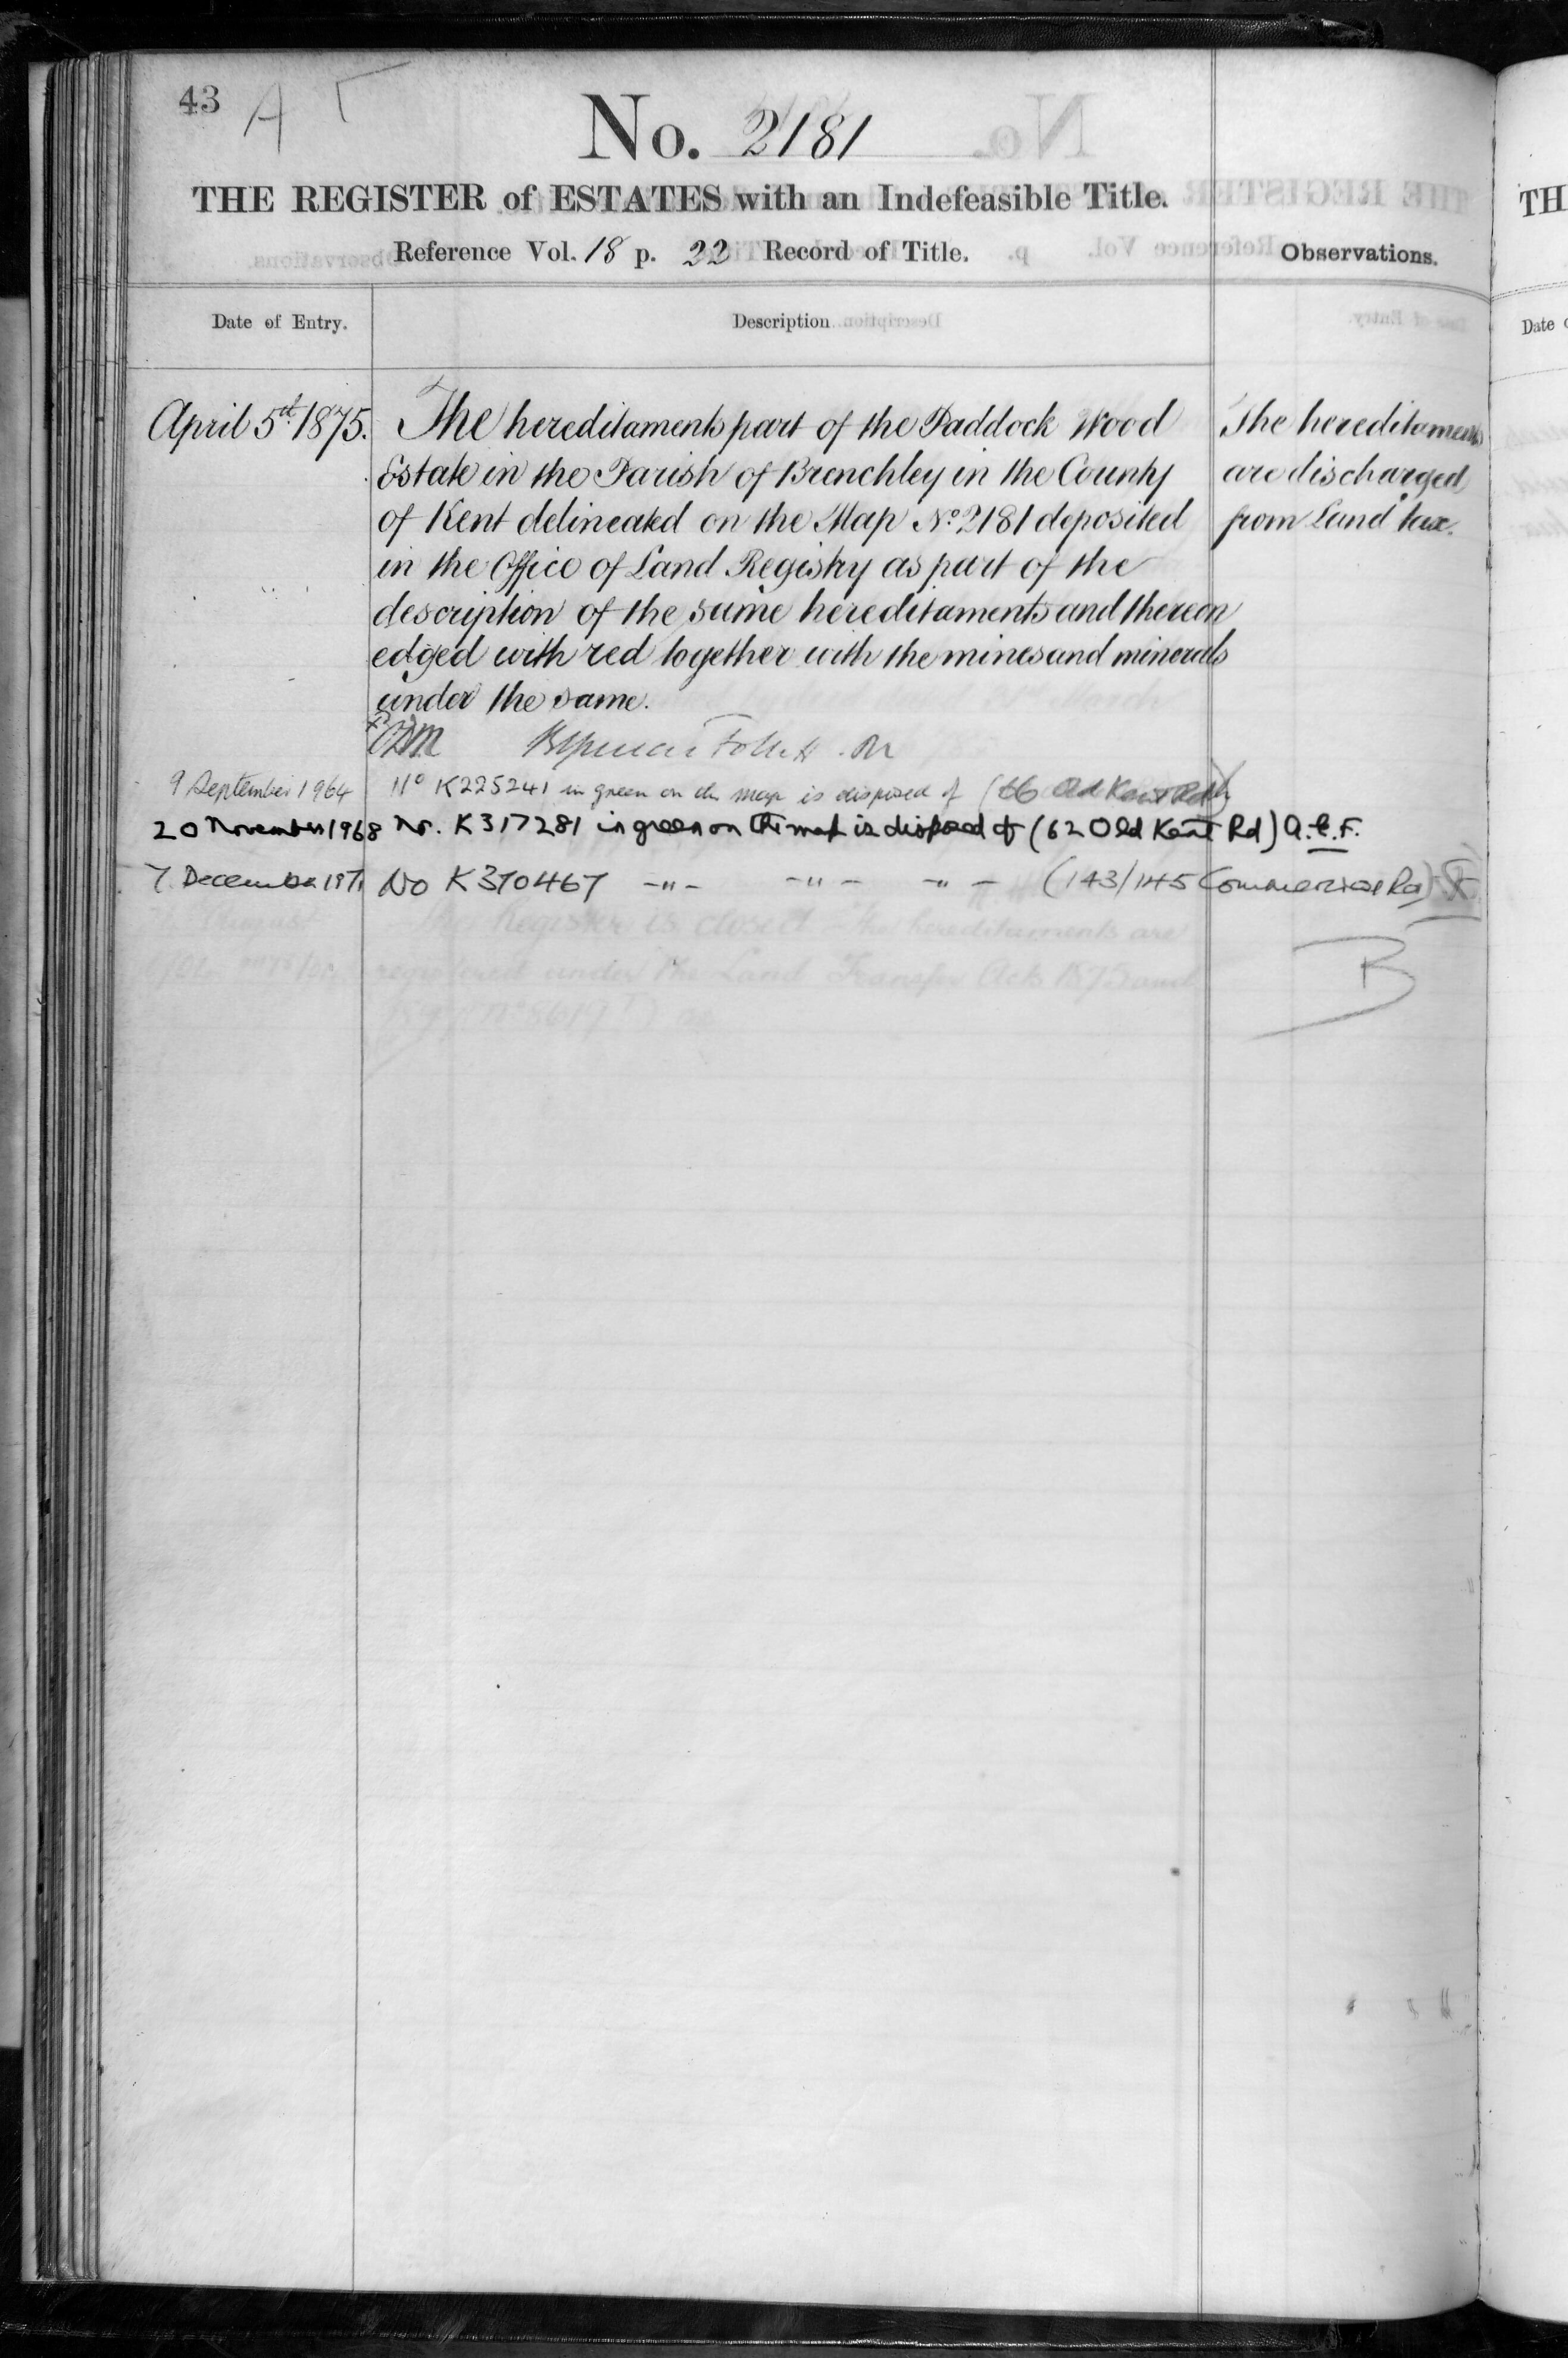 43 A
No. 2181
THE REGISTER of ESTATES with an Indefeasible Title.
Reference Vol. 18 p. 22 Record of Title.
Observations.
Date of Entry.
Description
April 5th 1875.
The hereditaments part of the Paddock Wood
Estate in the Parish of Brenchley in the County
of Kent delineated on the Map No 2181 deposited
in the Office of Land Registry as part of the
description of the same hereditaments and thereon
edged with red together with the mines and minerals
under the same.
The hereditaments
are discharged
from Land tax.
9 September 1964 No K225241 in green on the map is disposed of (66 Old Kent Rd)
20 November 1968 Nr. K317281 in green on the map is disposed of (62 Old Kent Rd) a.e.F.
7 December 1971 No K370467 -"- -"- -"- (143/145 Commercial Rd)
B
the Register is closed the hereditaments are
registered under the Land Transfer Acts 1875 and
TH
Date